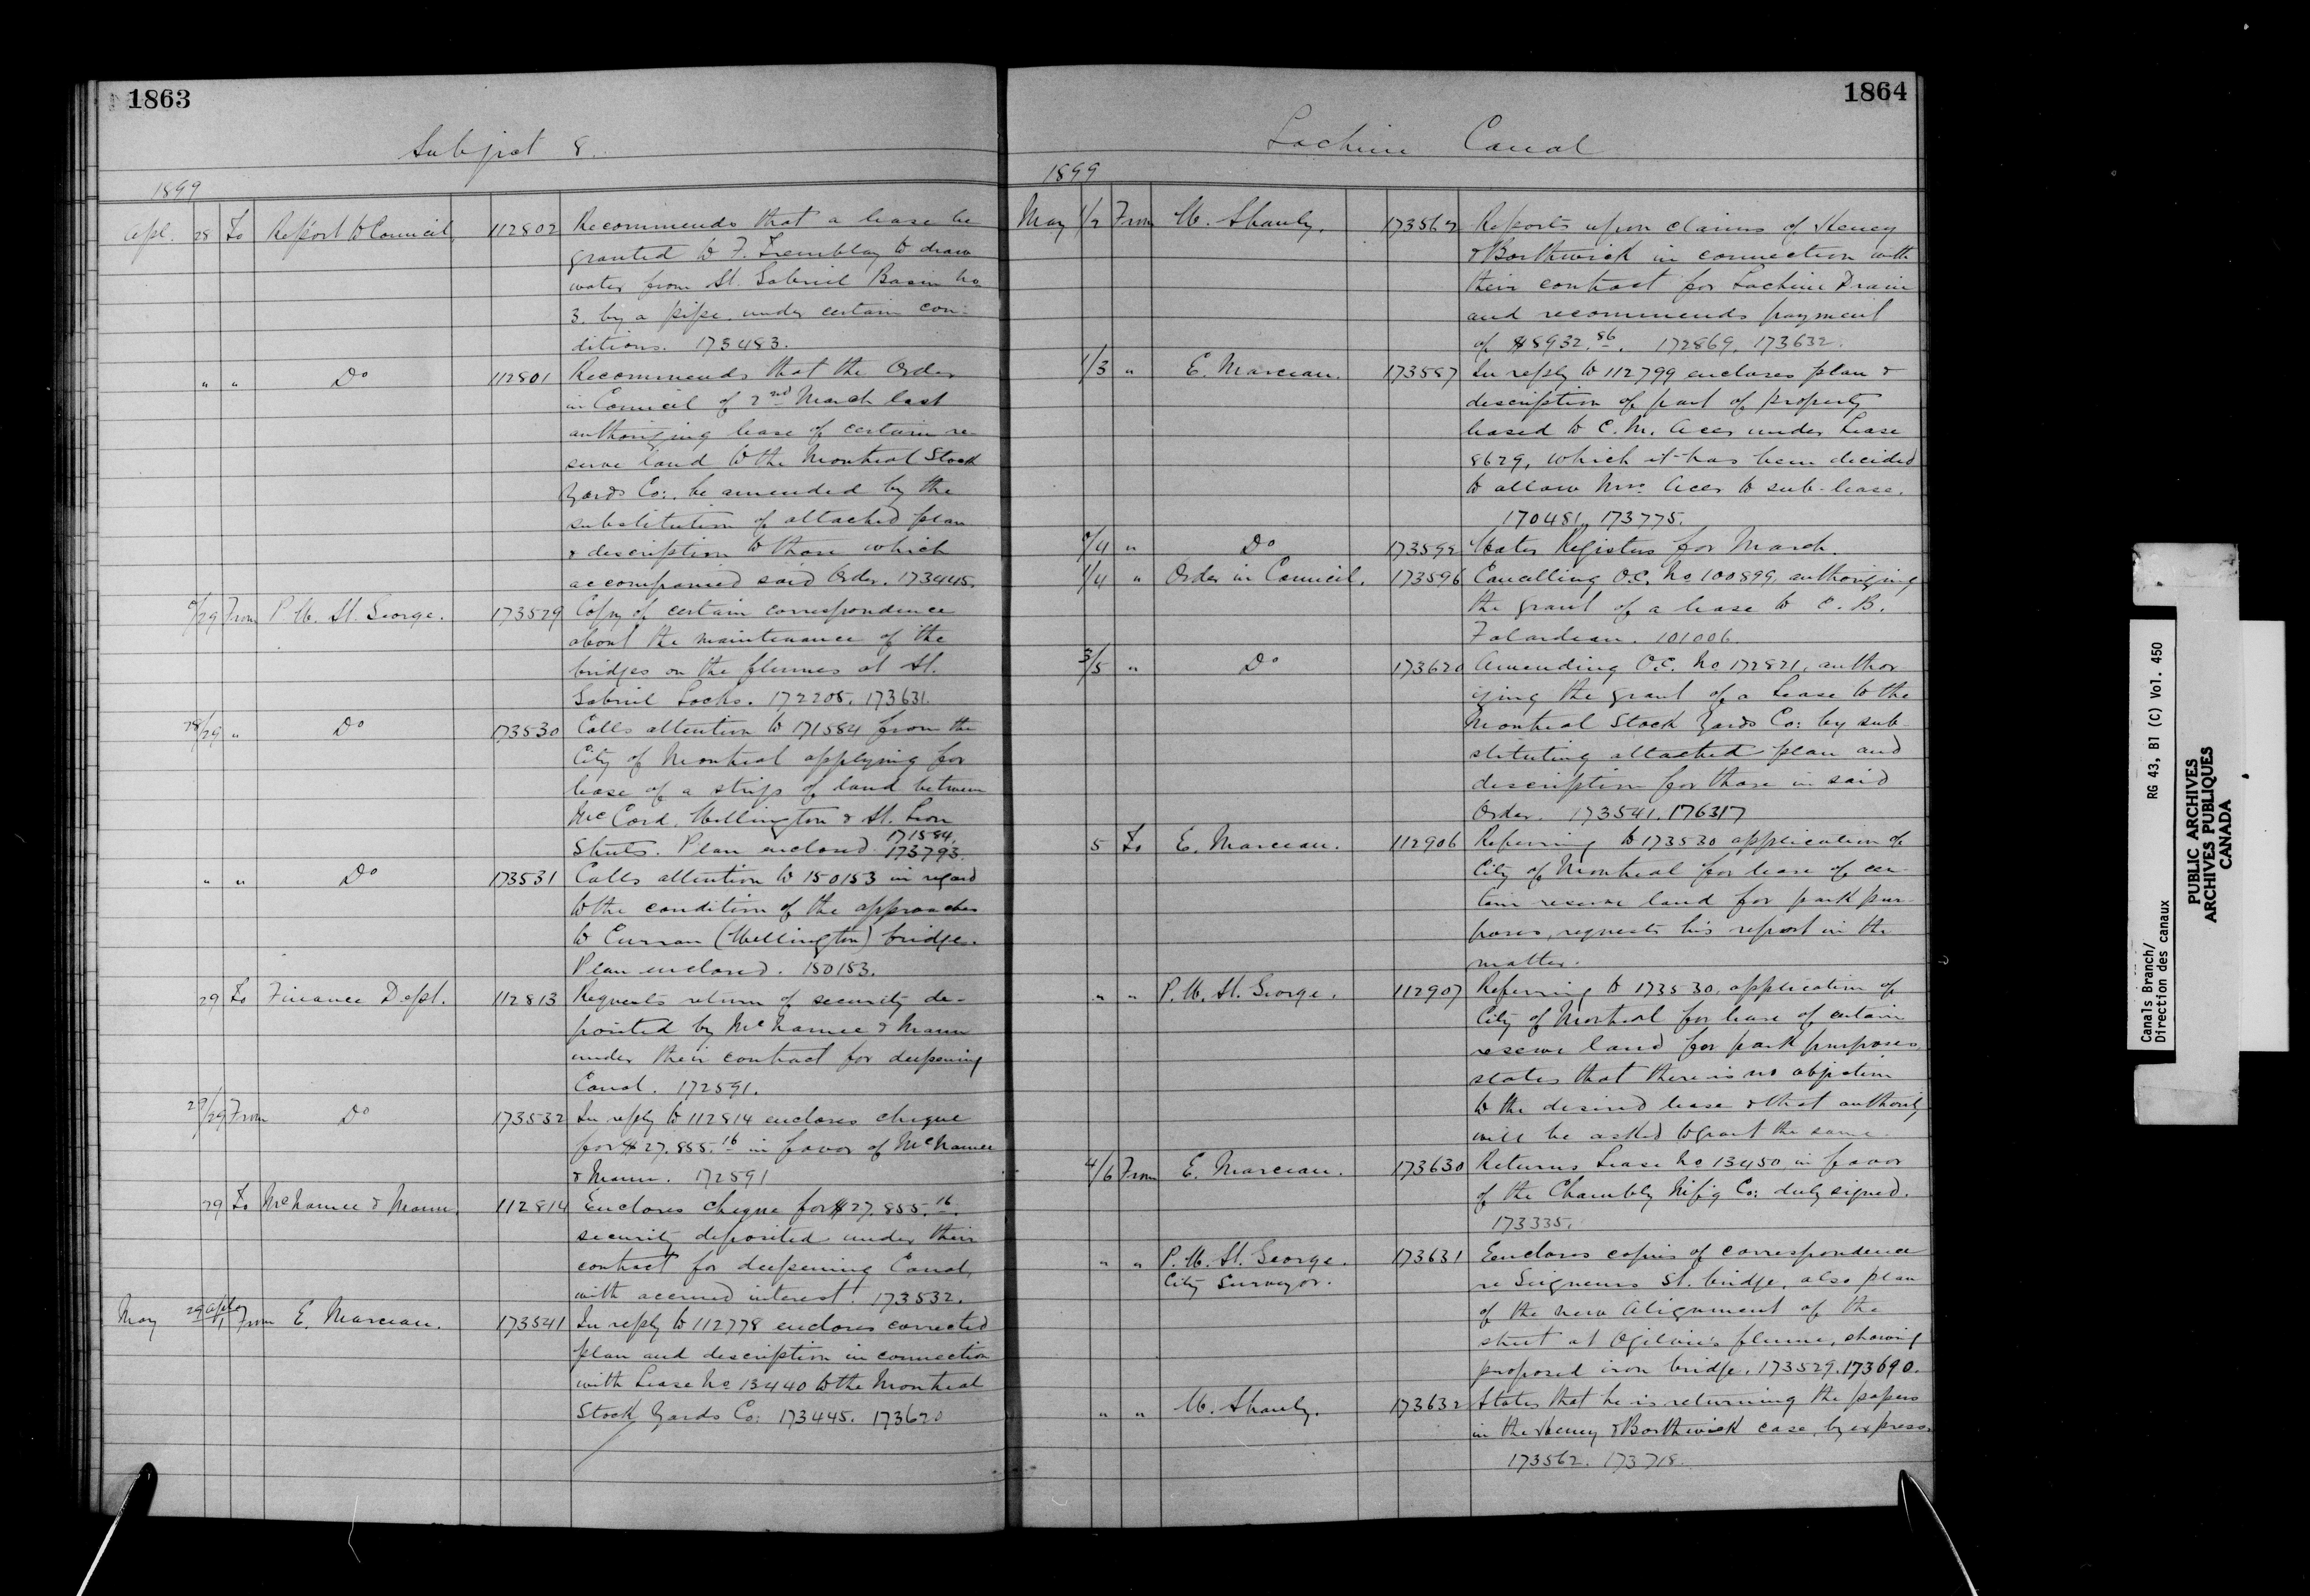 1863
Subject 8.
1899
Apl. 28 To Report to Council 112802 Recommends that a lease be
granted to F. Tremblay to draw
water from St. Gabriel Basin No
3. by a pipe under certain con-
ditions. 173483.
" " Do 112801 Recommends that the Order
in Council of 2nd March last
authorizing lease of certain re-
serve land to the Montreal Stock
Yards Co: be amended by the
substitution of attached plan
& description to those which
accompanied said Order. 173445.
/29 From P. W. St. George. 173529 Copy of certain correspondence
about the maintenance of the
bridges on the flumes at St.
Gabriel Locks. 172205. 173631.
28/29 " Do 173530 Calls attention to 171584 from the
City of Montreal applying for
lease of a strip of land between
McCord, Wellington & St. Leon
Streets. Plan enclosed 171584.
173793.
" " Do 173531 Calls attention to 150153 in regard
to the condition of the approaches
to Curran (Wellington) bridge.
Plan enclosed. 150153.
29 To Finance Dept. 112813 Requests return of security de-
posited by McNamee & Mann
under their contract for deepening
Canal. 172591.
29/29 From Do 173532 In reply to 112814 encloses cheque
for $27,855.16 in favor of McNamee
& Mann. 172591
29 To McNamee & Mann. 112814 Encloses cheque for $27,855.16.
security deposited under their
contract for deepening Canal,
with accrued interest. 173532.
May 29 Apl/1 From E. Marceau. 173541 In reply to 112778 encloses corrected
plan and description in connection
with Lease No 13440 to the Montreal
Stock Yards Co: 173445. 173620
1864
Lachine Canal
1899
May 1/2 From W. Shanly. 173562 Reports upon claims of Heney
& Borthwick in connection with
their contract for Lachine Drain
and recommends payment
of $8932.86. 172869. 173632.
1/3 " E. Marceau. 173587 In reply to 112799 encloses plan &
description of part of property
leased to C. M. Acer under Lease
8629, which it has been decided
to allow Mrs. Acer to sub-lease.
170481. 173775.
/4 " Do 173592 Water Registers for March.
1/4 " Order in Council. 173596 Cancelling O.C. No 100899, authorizing
the grant of a lease to C. B.
Falardeau. 101006.
3/5 " Do 173620 Amending O.C. No 172821, author-
izing the grant of a Lease to the
Montreal Stock Yards Co: by sub-
stituting attached plan and
description for those in said
Order. 173541. 176317
5 To E. Marceau. 112906 Referring to 173530 application of
City of Montreal for lease of cer-
tain reserve land for park pur-
poses, requests his report in the
matter.
" " P. W. St. George. 112907 Referring to 173530, application of
City of Montreal for lease of certain
reserve land for park purposes
states that there is no objection
to the desired lease & that authority
will be asked to grant the same.
4/6 From E. Marceau. 173630 Returns Lease No 13450 in favor
of the Chambly M'f'g Co: duly signed.
173335.
" " P. W. St. George. 173631 Encloses copies of correspondence
City Surveyor. re Seigneurs St. bridge, also plan
of the new alignment of the
street at Ogilvie's flume, showing
proposed iron bridge. 173529. 173690.
" " W. Shanly. 173632 States that he is returning the papers
in the Heney & Borthwick case, by express.
173562. 173718.
Canals Branch/
Direction des canaux
RG 43, B1 (C) Vol. 450
PUBLIC ARCHIVES
ARCHIVES PUBLIQUES
CANADA